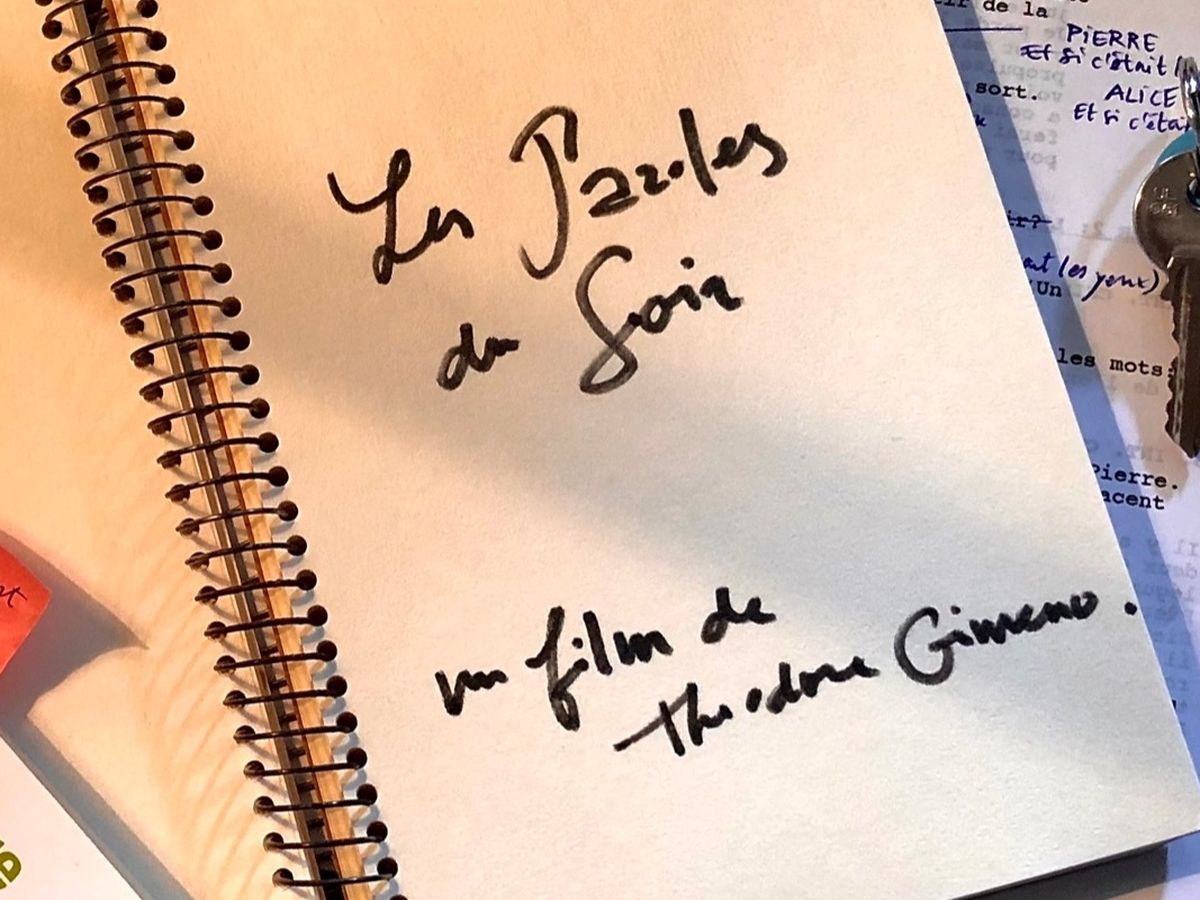 Les Paroles
du Soir
un film de
Theodore Gimeno.
de la
PIERRE
Et si c'était
sort.
ALICE
Et si c'étai
les yeux)
Un
les mots
Pierre.
acent